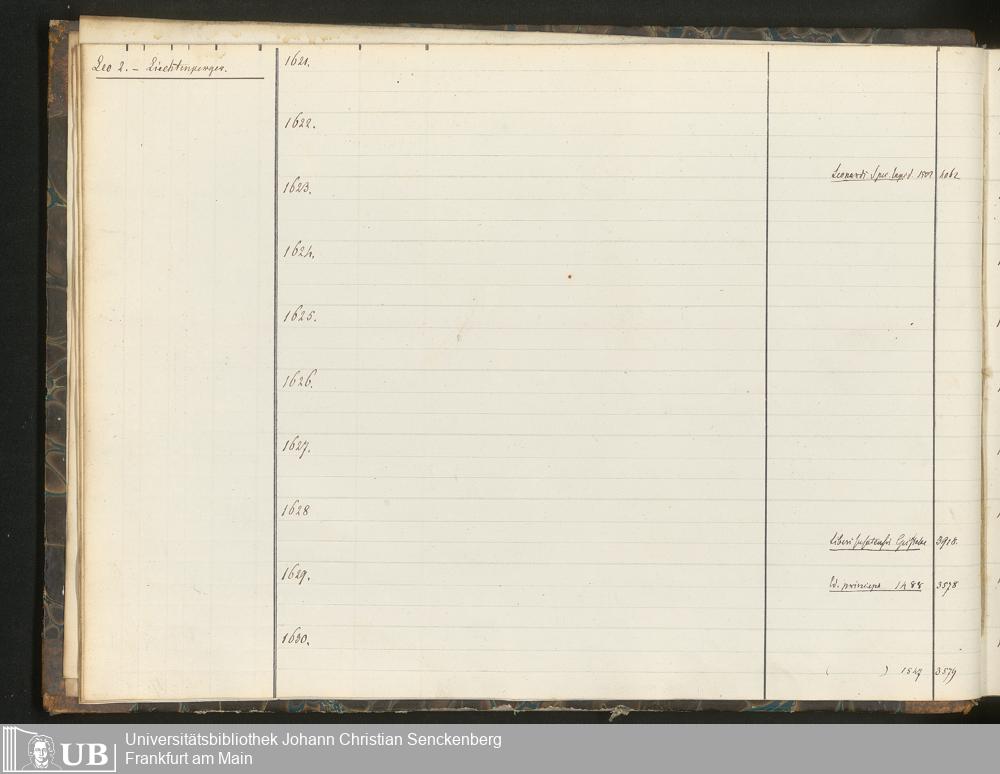 Leo 2. – Liechtenberger.
1621.
1622.
Leonardi Spec. lapid. 1502 4062
1623.
1624.
1625.
1626.
1627.
1628
Epistolae 3918.
1629.
Ed. princeps 1488 3578
1630.
( ) 1547 3579
UB Universitätsbibliothek Johann Christian Senckenberg
Frankfurt am Main